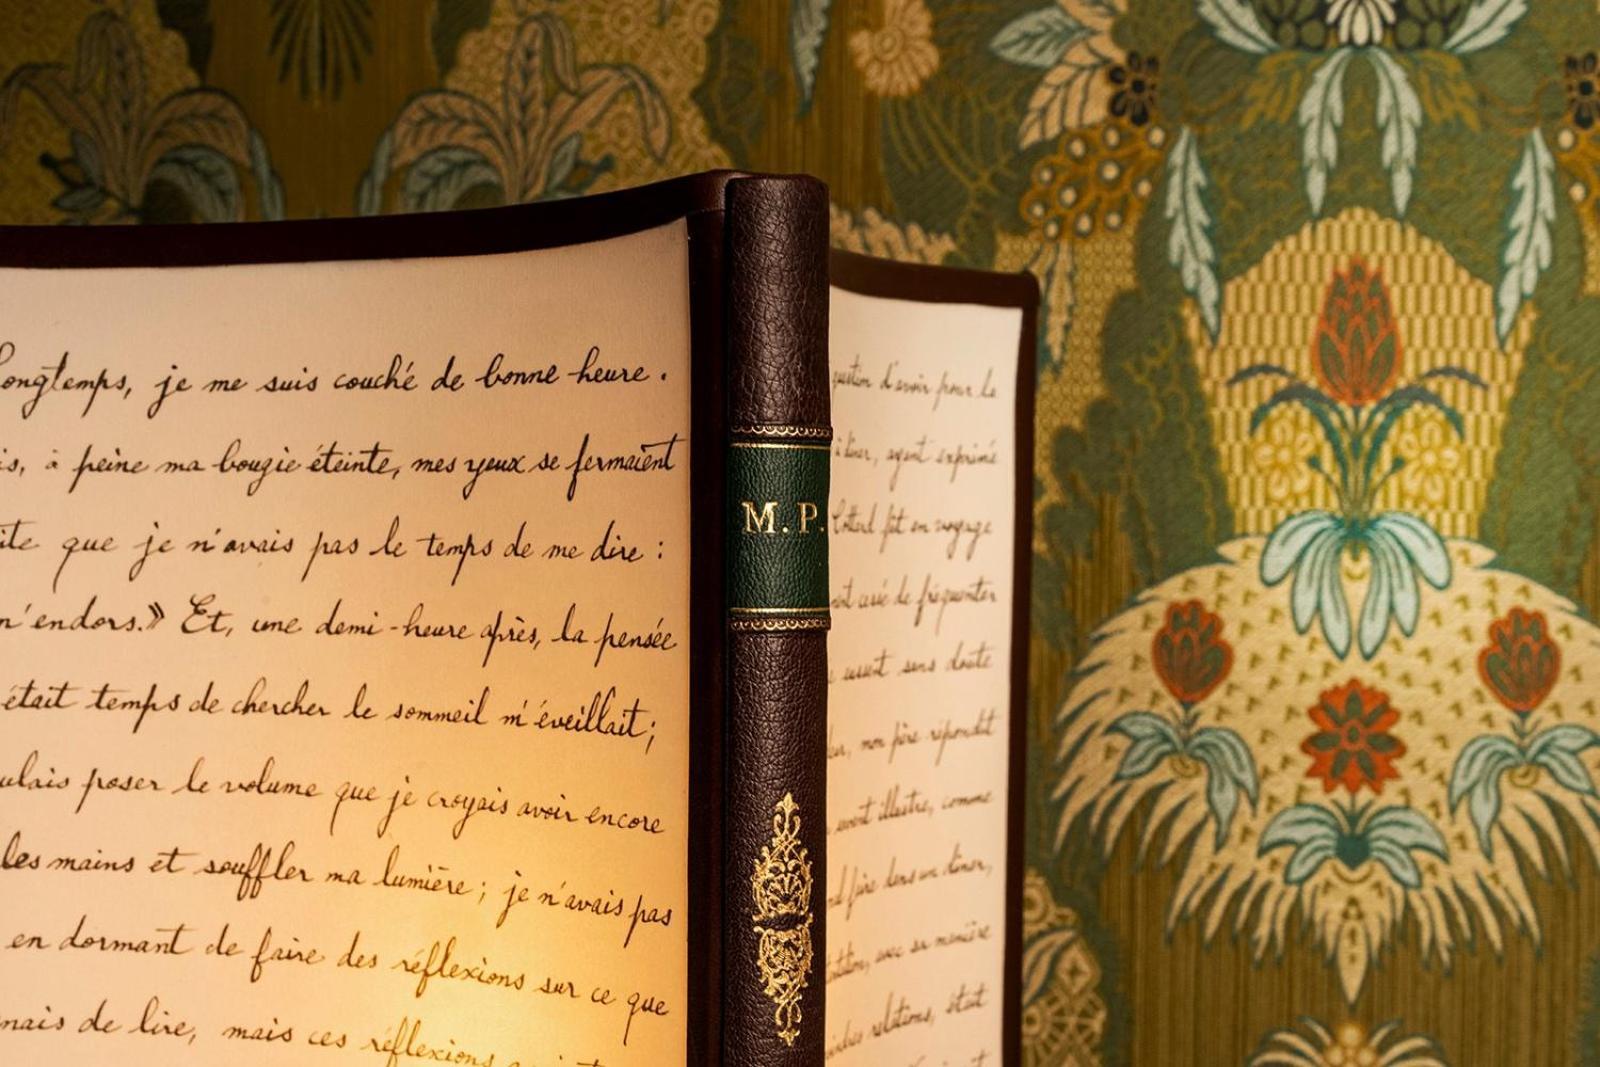 Longtemps, je me suis couché de bonne heure.
à peine ma bougie éteinte, mes yeux se fermaient
que je n'avais pas le temps de me dire :
m'endors.» Et, une demi-heure après, la pensée
était temps de chercher le sommeil m'éveillait;
poser le volume que je croyais avoir encore
les mains et souffler ma lumière; je n'avais pas
en dormant de faire des réflexions sur ce que
de lire, mais ces réflexions
M.P.
question d'avoir pour la
à dîner, ayant exprimé
Cottard fût en voyage
cessé de fréquenter
eussent sans doute
mon père répondit
savant illustre, comme
faire dans un dîner,
avec sa manière
relations, était